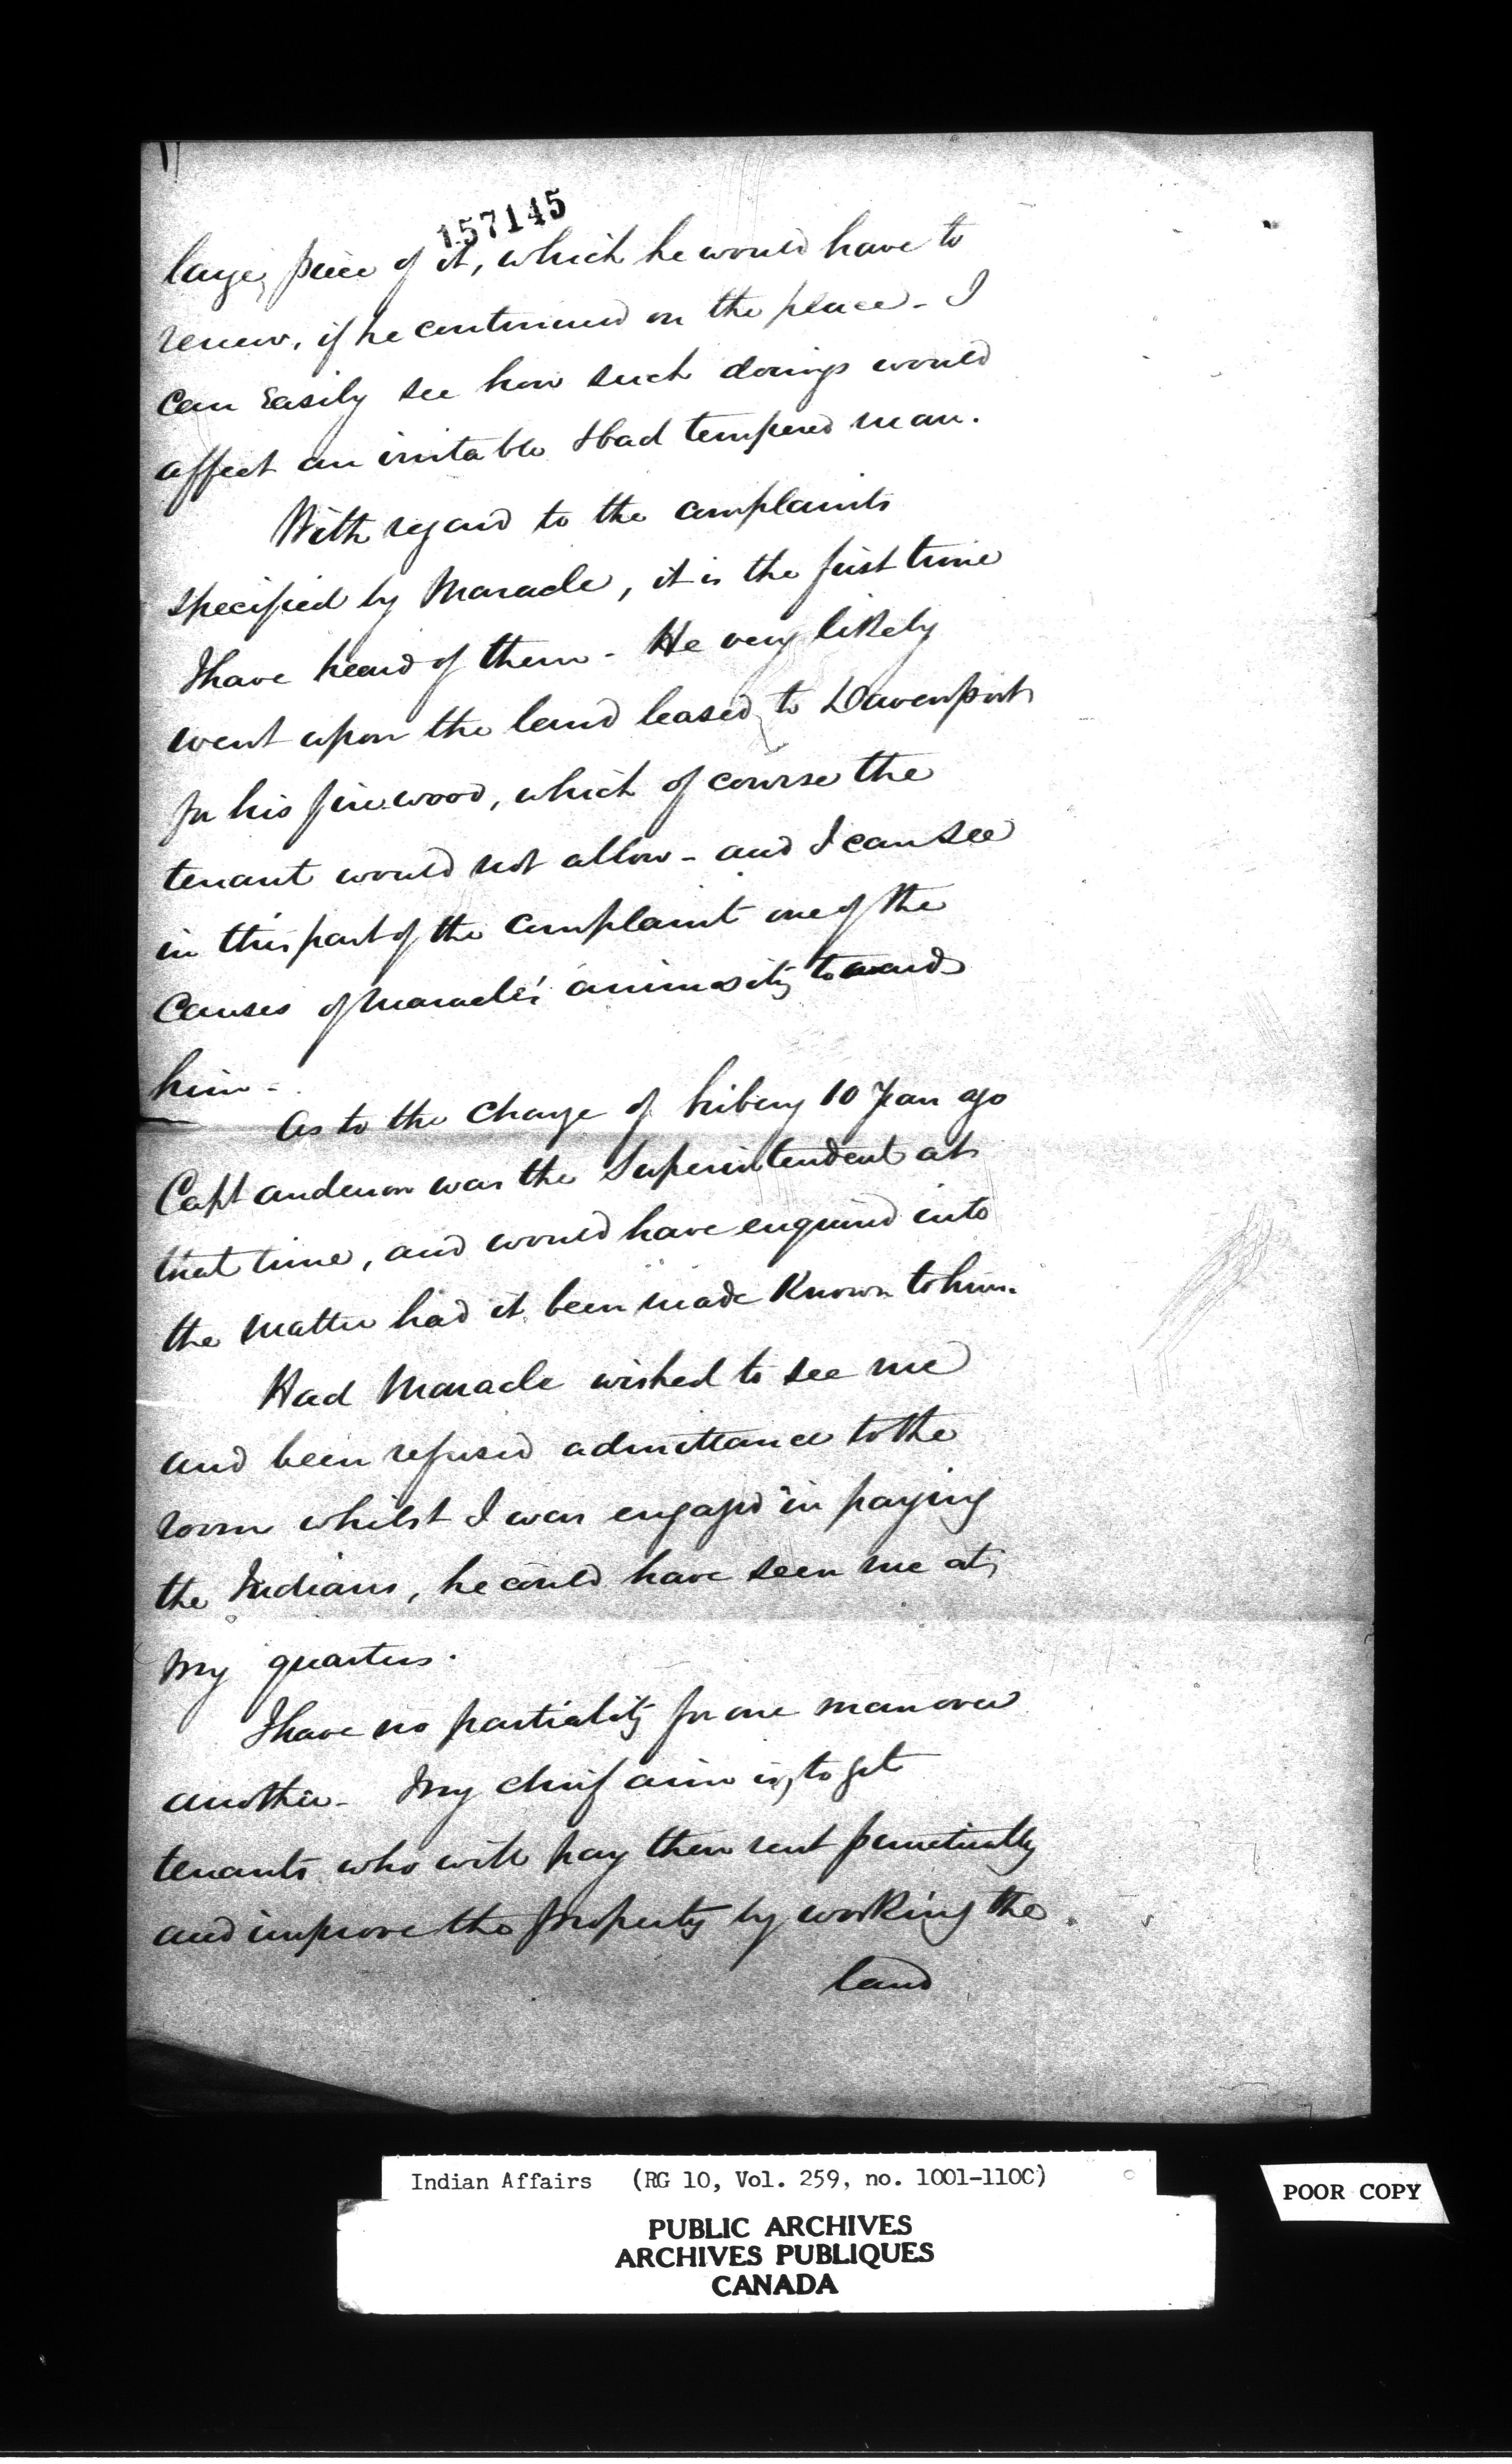 157145
large piece of it, which he would have to
renew, if he continued on the place - I
can easily see how such doings would
affect an irritable & bad tempered man.
With regard to the complaints
specified by Maracle, it is the first time
I have heard of them - He very likely
went upon the land leased to Davenport
for his firewood, which of course the
tenant would not allow - and I can see
in this part of the complaint one of the
causes of Maracle's animosity towards
him -
As to the charge of bribery 10 years ago
Capt Anderson was the Superintendent at
that time, and would have enquired into
the matter had it been made known to him.
Had Maracle wished to see me
and been refused admittance to the
room whilst I was engaged in paying
the Indians, he could have seen me at
my quarters.
I have no partiality for one man over
another - My chief aim is, to get
tenants who will pay their rent punctually
and improve the property by working the
land
Indian Affairs (RG 10, Vol. 259, no. 1001-1100)
POOR COPY
PUBLIC ARCHIVES
ARCHIVES PUBLIQUES
CANADA